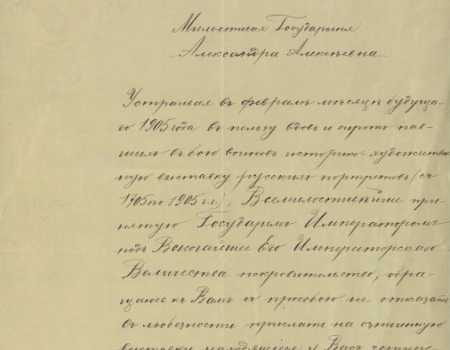 Милостивая Государыня
Александра Алексѣевна.
Устраивая въ февралѣ мѣсяцѣ будуща-
го 1905 года въ пользу вдовъ и сиротъ пав-
шихъ въ бою воиновъ историко-художествен-
ную выставку русскихъ портретовъ (съ
1705 по 1905 г.г.), Всемилостивѣйше при-
нятую Государемъ Императоромъ
подъ Высочайшее Его Императорскаго
Величества покровительство, обра-
щаюсь къ Вамъ съ просьбою не отказать
въ любезности прислать на означенную
выставку находящіеся у Васъ